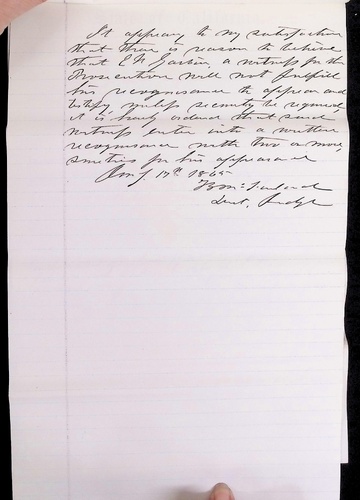 It appearing to my satisfaction
that there is reason to believe
that E N a witness for the
Prosecution will not fulfill
his recognizance to appear and
testify unless security be required,
it is hereby ordered that said
witness enter into a written
recognizance with two or more
sureties for his appearance
17th 1865
Judge